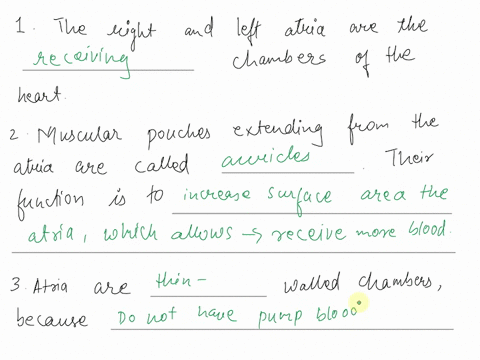 1. The right and left atria are the
receiving chambers of the
heart.
2. Muscular pouches extending from the
atria are called auricles. Their
function is to increase surface area the
atria, which allows → receive more blood.
3. Atria are thin- walled chambers,
because Do not have pump blood